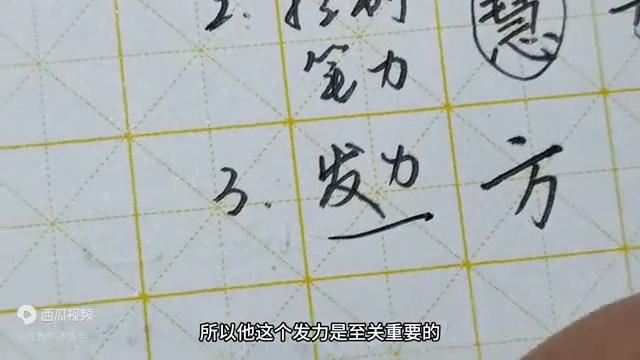 2. 控制 慧
笔力
3. 发力 方
西瓜视频
所以他这个发力是至关重要的